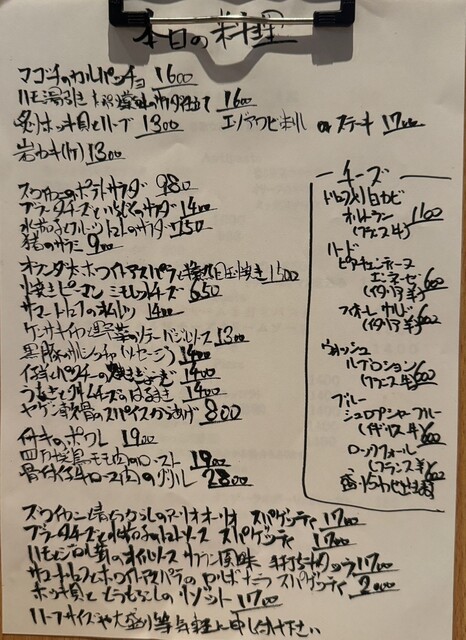 本日の料理
マゴチのカルパッチョ 1600
ハモ湯引き 1600
炙りホッキ貝とハーブ 1300 エゾアワビ お刺し or ステーキ 1700
岩カキ(ケ) 1300
ズワイカニのポテトサラダ 980
ブラータチーズといちじくのサラダ 1400
水なすとフルーツトマトのサラダ 1150
猪のサラミ 900
オランダ産ホワイトアスパラと 目玉焼き 1500
焼きピーマン ミモレットチーズ 650
サマートリュフのオムレツ 1400
ケンサキイカと野菜のソテー バジルソース 1300
黒豚のサルシッチャ(ソーセージ) 1400
仔羊とパクチーの焼きぎょうざ 1400
うなぎとクリームチーズのはるまき 1400
ヤゲン軟骨のスパイスから揚げ 800
イサキのポワレ 1900
四万十鶏モモ肉のロースト 1900
骨付仔牛ロース肉のグリル 2800
チーズ
ドルチェ 白カビ
オルトラン 1100
(フランス 牛)
ハード
ピアチェンティーヌ
エンネーゼ 600
(イタリア 羊)
フィオーレ サルド 600
(イタリア 羊)
ウォッシュ
ルブロション 600
(フランス 牛)
ブルー
シュロプシャーブルー
(イギリス 牛) 600
ロックフォール
(フランス 羊) 600
盛り合わせ出来ます
ズワイカニと青とうがらしのアーリオオーリオ スパゲッティ 1700
ブラータチーズと水なすのトマトソース スパゲッティ 1700
ハモと のオイルソース カラスミ風味 手打ち 1700
サマートリュフとホワイトアスパラのカルボナーラ スパゲッティ 2000
ホッキ貝ととうもろこしのリゾット 1700
ハーフサイズや大盛り等気軽に申し付け下さい